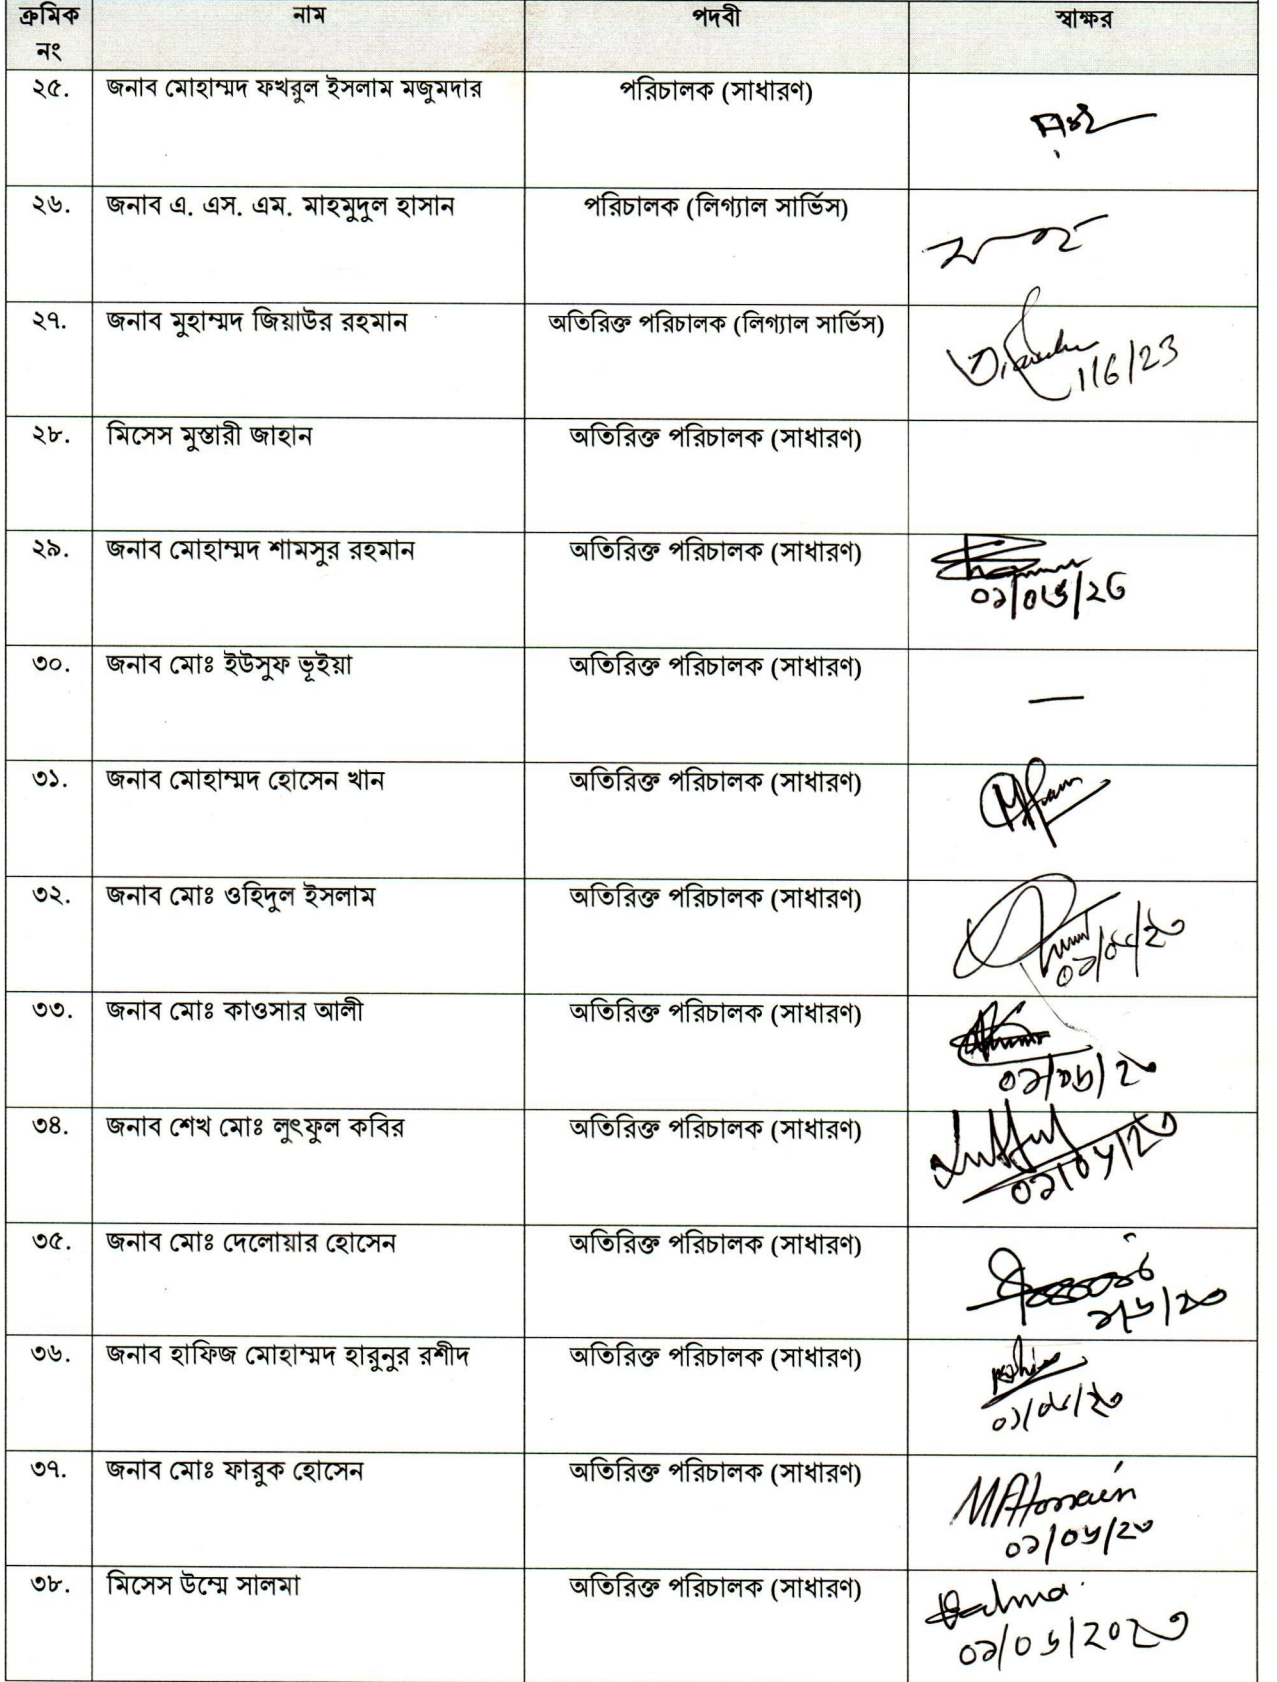 ক্রমিক নং নাম পদবী স্বাক্ষর
২৫. জনাব মোহাম্মদ ফখরুল ইসলাম মজুমদার পরিচালক (সাধারণ)
২৬. জনাব এ. এস. এম. মাহমুদুল হাসান পরিচালক (লিগ্যাল সার্ভিস)
২৭. জনাব মুহাম্মদ জিয়াউর রহমান অতিরিক্ত পরিচালক (লিগ্যাল সার্ভিস)
1/6/23
২৮. মিসেস মুস্তারী জাহান অতিরিক্ত পরিচালক (সাধারণ)
২৯. জনাব মোহাম্মদ শামসুর রহমান অতিরিক্ত পরিচালক (সাধারণ)
০১/০৬/২৩
৩০. জনাব মোঃ ইউসুফ ভূইয়া অতিরিক্ত পরিচালক (সাধারণ)
—
৩১. জনাব মোহাম্মদ হোসেন খান অতিরিক্ত পরিচালক (সাধারণ)
৩২. জনাব মোঃ ওহিদুল ইসলাম অতিরিক্ত পরিচালক (সাধারণ)
০১/০৬/২৩
৩৩. জনাব মোঃ কাওসার আলী অতিরিক্ত পরিচালক (সাধারণ)
০১/০৬/২৩
৩৪. জনাব শেখ মোঃ লুৎফুল কবির অতিরিক্ত পরিচালক (সাধারণ)
Lutful
০১/০৬/২৩
৩৫. জনাব মোঃ দেলোয়ার হোসেন অতিরিক্ত পরিচালক (সাধারণ)
১/৬/২৩
৩৬. জনাব হাফিজ মোহাম্মদ হারুনুর রশীদ অতিরিক্ত পরিচালক (সাধারণ)
০১/০৬/২৩
৩৭. জনাব মোঃ ফারুক হোসেন অতিরিক্ত পরিচালক (সাধারণ)
০১/০৬/২৩
৩৮. মিসেস উম্মে সালমা অতিরিক্ত পরিচালক (সাধারণ)
Salma
০১/০৬/২০২৩